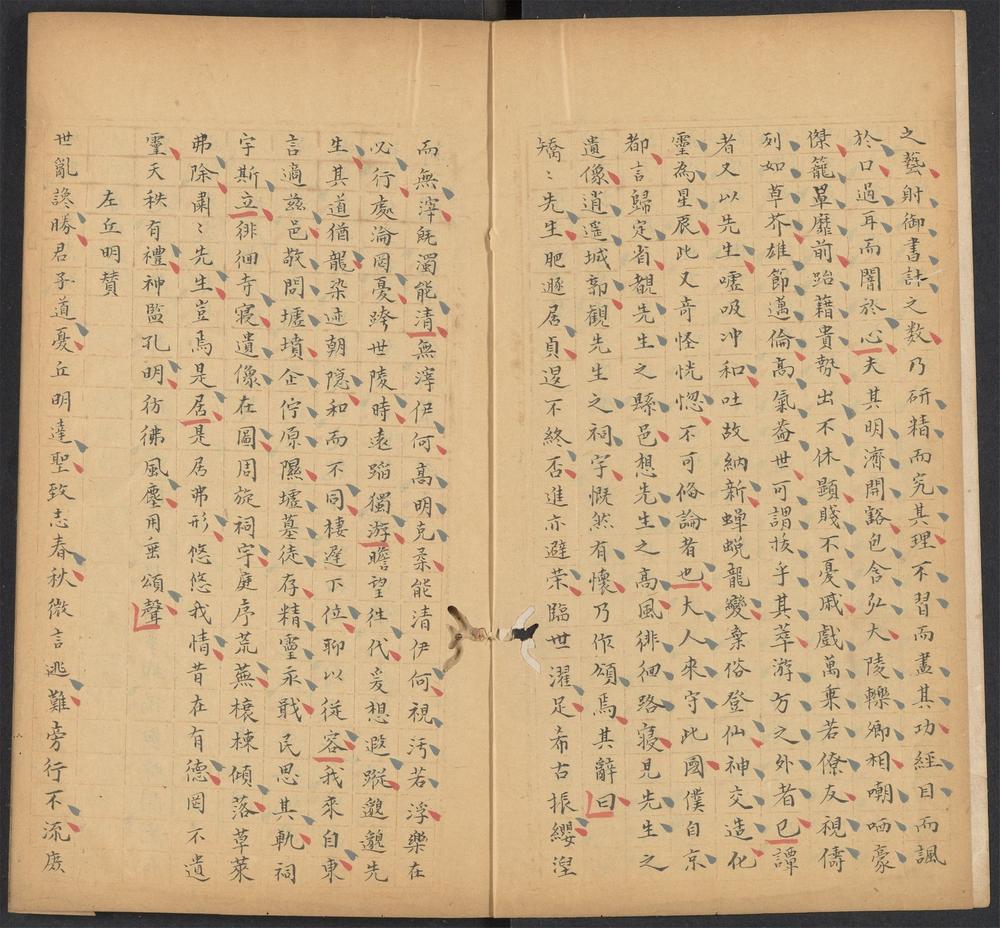 之藝射御書計之數乃研精而究其理不習而盡其功經目而諷
於口過耳而闇於心夫其明濟開豁包含弘大陵轢卿相嘲哂豪
傑籠罩靡前跆藉貴勢出不休顯賤不憂戚戲萬乘若僚友視儔
列如草芥雄節邁倫高氣葢世可謂拔乎其萃游方之外者已譚
者又以先生噓吸冲和吐故納新蟬蛻龍變棄俗登仙神交造化
靈為星辰此又奇怪恍惚不可俻論者也大人來守此國僕自京
都言歸定省覩先生之縣邑想先生之高風徘徊路寢見先生之
遺像逍遥城郭觀先生之祠宇慨然有懷乃作頌焉其辭曰
矯〻先生肥遯居貞退不終否進亦避荣臨世濯足希古振纓涅
而無滓旣濁能清無滓伊何高明克柔能清伊何視汚若浮樂在
必行處淪罔憂跨世陵時遠蹈獨游瞻望往代爰想遐蹤邈邈先
生其道猶龍染迹朝隠和而不同棲遲下位聊以従容我來自東
言適兹邑敬問墟墳企佇原隰墟墓徒存精靈永戢民思其軌祠
宇斯立徘徊寺寢遺像在圖周旋祠宇庭序荒蕪榱棟傾落草萊
弗除肅〻先生豈焉是居是居弗形悠悠我情昔在有德罔不遺
靈天秩有禮神監孔明彷彿風塵用垂頌聲
左丘明賛
世亂讒勝君子道憂丘明達聖致志春秋微言逃難旁行不流庻